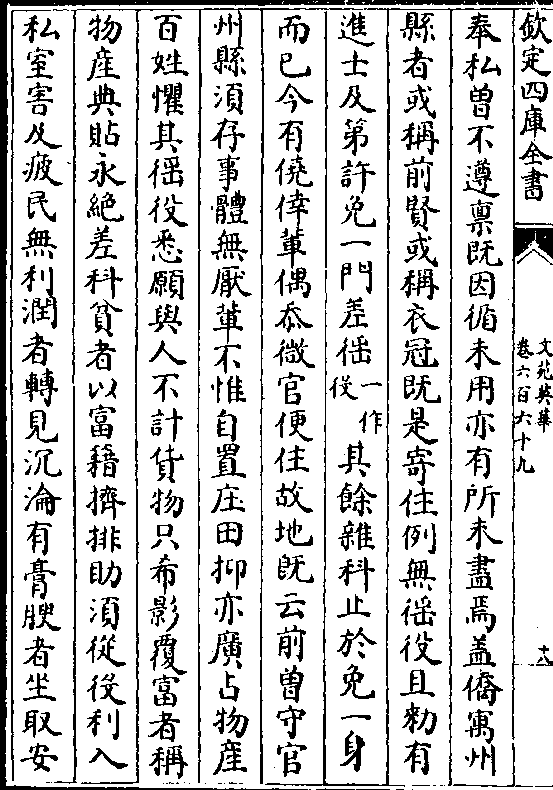 欽定四庫全書
文苑英華
卷六百六十九
十八
奉私曽不遵禀既因循未用亦有所未盡焉盖僑寓州
縣者或稱前賢或稱衣冠既是寄住例無徭役且勑有
進士及第許免一門差徭一作役其餘雜科止於免一身
而已今有僥倖輩偶忝微官便住故地既云前曽守官
州縣須存事體無厭輩不惟自置庄田抑亦廣占物産
百姓懼其徭役悉願與人不計貨物只希影覆富者稱
物産典貼永絶差科貧者以富籍擠排助須從後利入
私室害及疲民無利潤者轉見沉淪有膏腴者坐取安